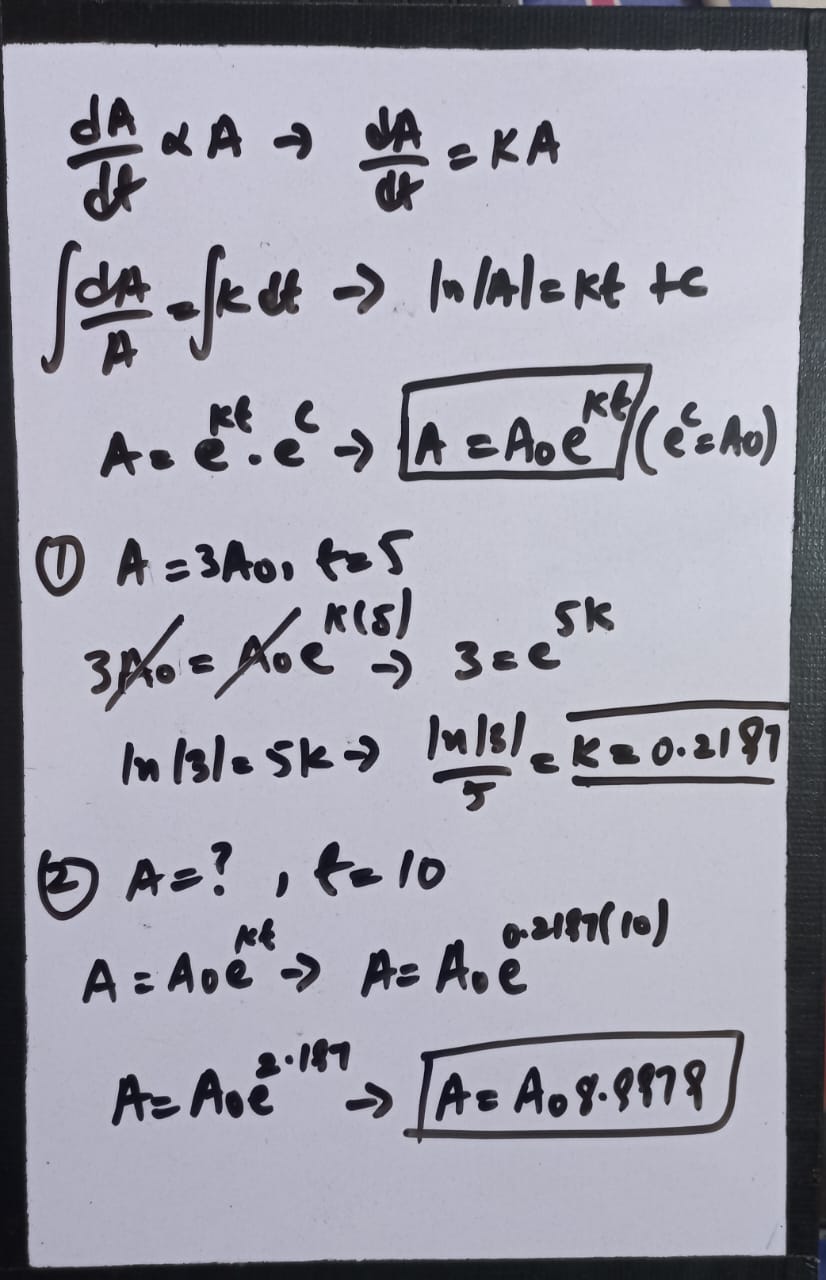 dA/dt ∝ A → dA/dt = KA
∫ dA/A = ∫ k dt → ln |A| = kt + c
A = e^kt . e^c → A = A₀e^kt (e^c = A₀)
① A = 3A₀, t = 5
3A₀ = A₀e^K(5) → 3 = e^5k
ln |3| = 5k → ln |3|/5 = K = 0.2197
② A = ? , t = 10
A = A₀e^kt → A = A₀e^0.2197(10)
A = A₀e^2.197 → A = A₀ 8.9979